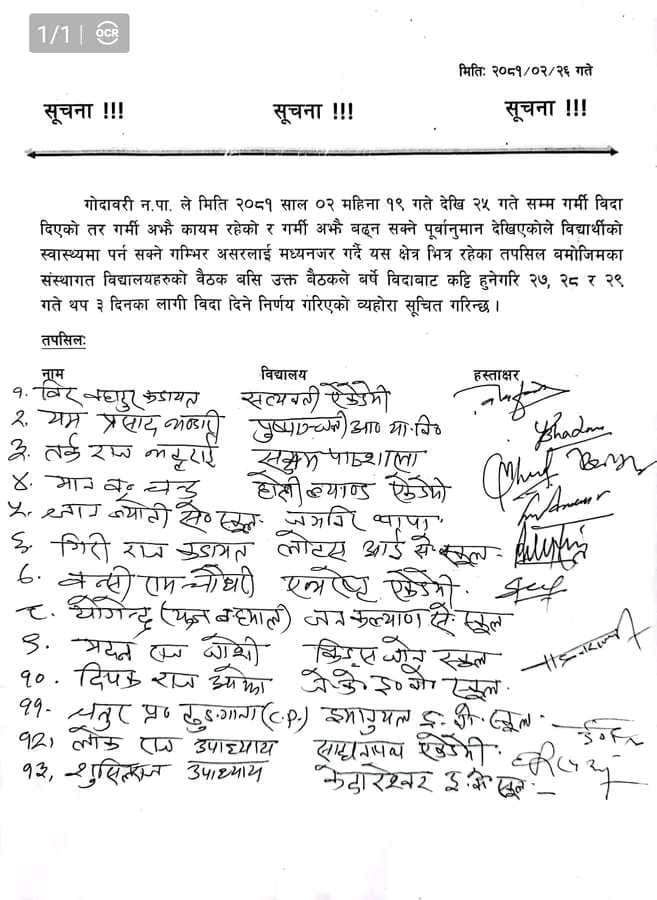 1/1 OCR
मितिः २०८१/०२/२६ गते
सूचना !!! सूचना !!! सूचना !!!
गोदावरी न.पा. ले मिति २०८१ साल ०२ महिना १९ गते देखि २५ गते सम्म गर्मी विदा
दिएको तर गर्मी अझै कायम रहेको र गर्मी अझै बढ्न सक्ने पूर्वानुमान देखिएकोले विद्यार्थीको
स्वास्थ्यमा पर्न सक्ने गम्भिर असरलाई मध्यनजर गर्दै यस क्षेत्र भित्र रहेका तपसिल बमोजिमका
संस्थागत विद्यालयहरुको बैठक बसि उक्त बैठकले बर्षे विदाबाट कट्टि हुनेगरि २७, २८ र २९
गते थप ३ दिनका लागी विदा दिने निर्णय गरिएको व्यहोरा सूचित गरिन्छ ।
तपसिलः
नाम विद्यालय हस्ताक्षर
१. विर बहादुर कडायत सत्यवती ऐकेडेमी
२. यम प्रसाद भण्डारी पुष्पाञ्जली आ० मा.वि०
३. तर्क राज भट्टराई सक्षम पाठशाला
४. मान ब. चन्द होली ल्याण्ड ऐकेडेमी
५. ज्योती से० स्कूल थापा
६. गिरी राज कडायत लोटस आई से. स्कूल
७. बन्सी राम चौधरी एकेडेमी
८. योगेन्द्र जन कल्याण से. स्कूल
९. मदन राज जोशी किड्स जोन स्कूल
१०. दिपक राज ओझा जे. के. इ० बो० स्कूल
११. चतुर प्र० (C.P.) इमानुयल इ. बो. स्कूल
१२. लोक राज उपाध्याय एकेडेमी
१३. उपाध्याय केदारेश्वर इ. बो. स्कूल